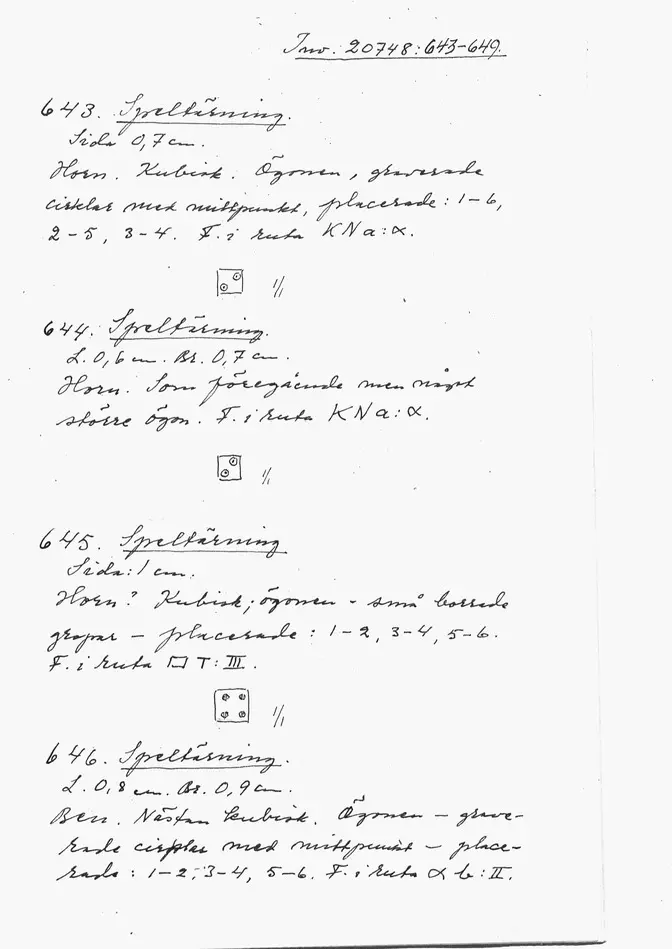 Inv. 20748:643-649.
643. Speltärning.
Sida 0,7 cm.
Horn. Kubisk. Ögonen, graverade
cirklar med mittpunkt, placerade: 1-6,
2-5, 3-4. F. i ruta KN a:α.
1/1
644. Speltärning.
L. 0,6 cm. Br. 0,7 cm.
Horn. Som föregående men något
större ögon. F. i ruta KN a:α.
1/1
645. Speltärning
Sida: 1 cm.
Horn? Kubisk; ögonen - små borrade
gropar - placerade: 1-2, 3-4, 5-6.
F. i ruta T: III.
1/1
646. Speltärning.
L. 0,8 cm. Br. 0,9 cm.
Ben. Nästan kubisk. Ögonen - grave-
rade cirklar med mittpunkt - place-
rade: 1-2, 3-4, 5-6. F. i ruta α b: II.